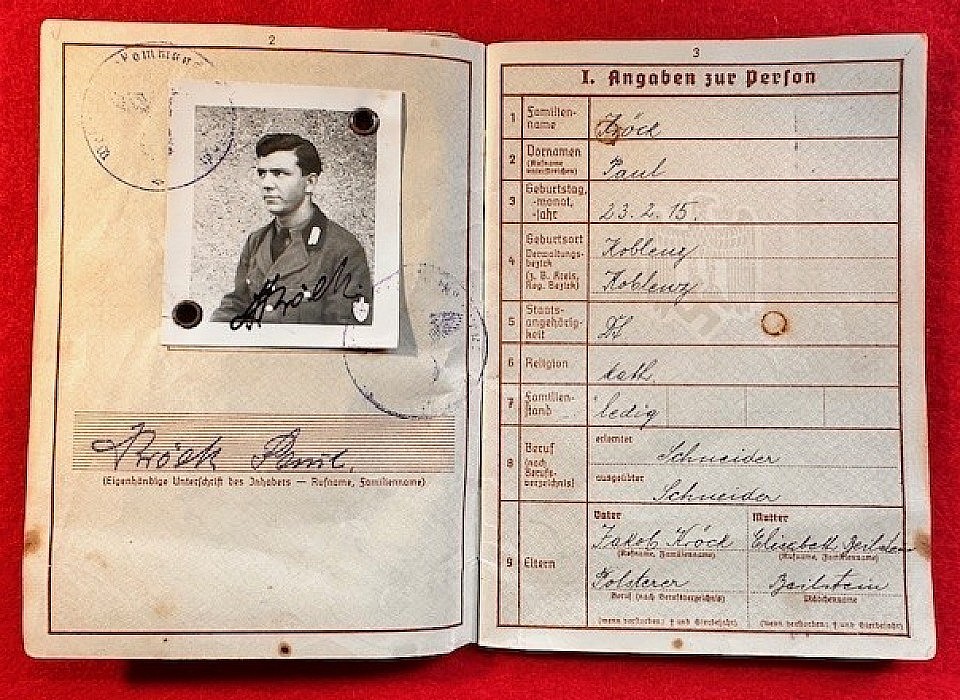 2
Kröck
Kröck Paul.
(Eigenhändige Unterschrift des Inhabers — Rufname, Familienname)
3
I. Angaben zur Person
1 Familien-
name
Kröck
2 Vornamen
(Rufname
unterstreichen)
Paul
3 Geburtstag,
-monat,
-jahr
23. 2. 15.
4 Geburtsort
Verwaltungs-
bezirk
(z. B. Kreis,
Reg. Bezirk)
Koblenz
Koblenz
5 Staats-
angehörig-
keit
6 Religion
kath.
7 Familien-
stand
ledig
8 Beruf
(nach
Berufs-
verzeichnis)
erlernter
Schneider
ausgeübter
Schneider
9 Eltern
Vater
Jakob Kröck
(Rufname, Familienname)
Polsterer
Beruf (nach Berufsverzeichnis)
(wenn verstorben: † und Sterbejahr)
Mutter
Elisabeth Beilstein
(Rufname, Familienname)
Beilstein
Mädchenname
(wenn verstorben: † und Sterbejahr)